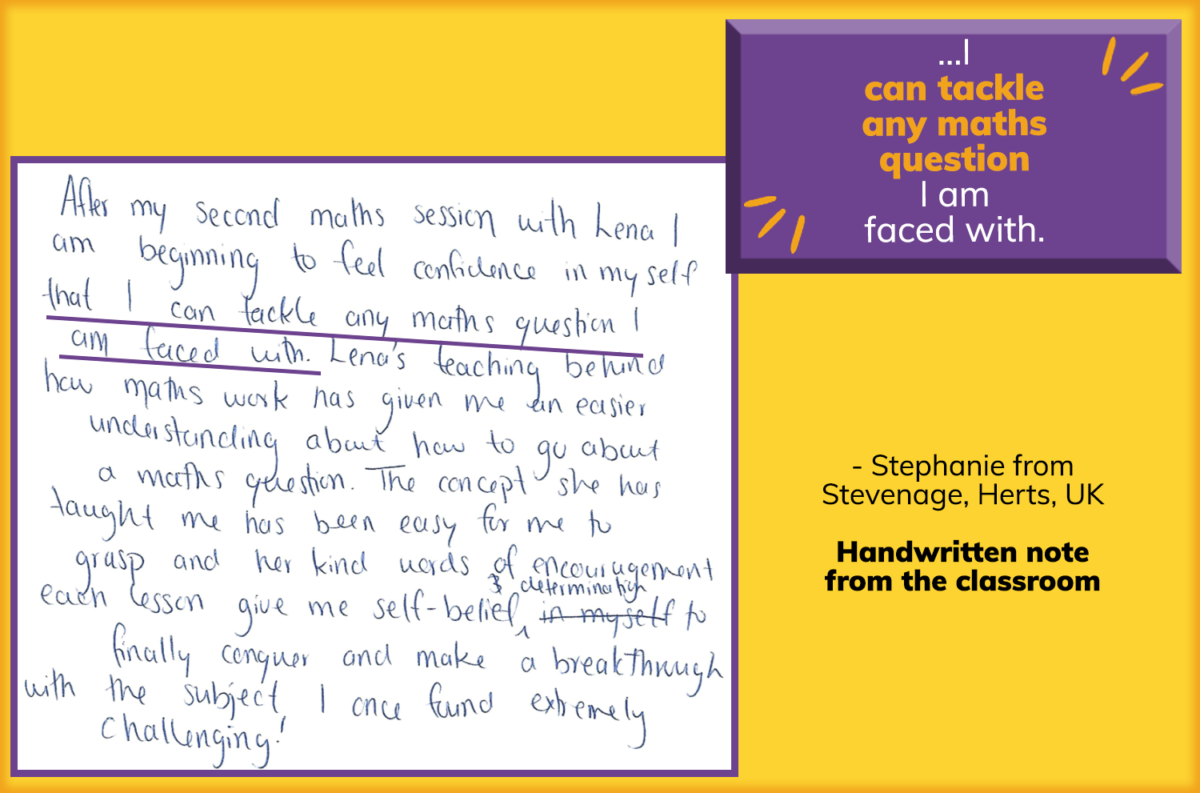 ...I
can tackle
any maths
question
I am
faced with.
After my second maths session with Lena I
am beginning to feel confidence in my self
that I can tackle any maths question I
am faced with. Lena's teaching behind
how maths work has given me an easier
understanding about how to go about
a maths question. The concept she has
taught me has been easy for me to
grasp and her kind words of encouragement
& determination
each lesson give me self-belief, in myself to
finally conquer and make a breakthrough
with the subject I once found extremely
challenging!
- Stephanie from
Stevenage, Herts, UK
Handwritten note
from the classroom